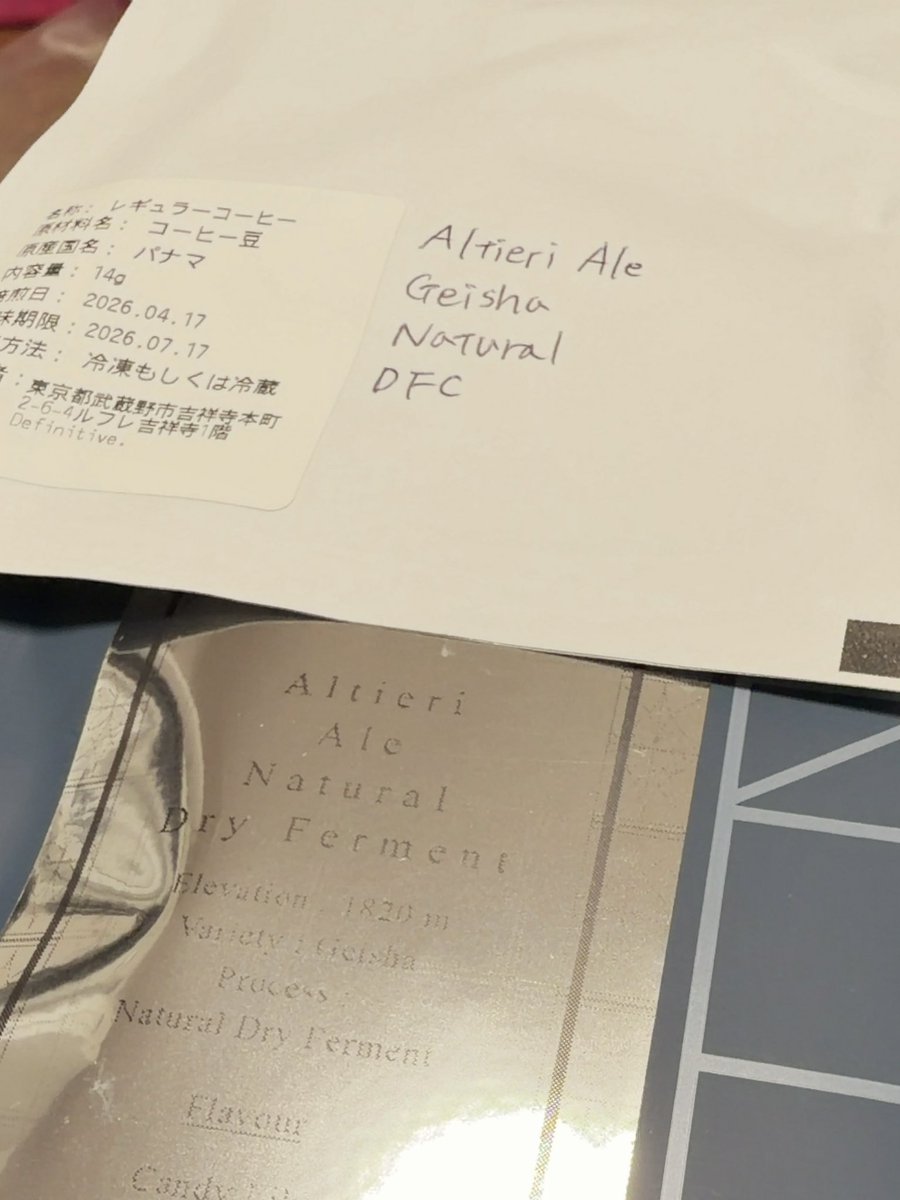 名称： レギュラーコーヒー
原材料名： コーヒー豆
原産国名： パナマ
内容量： 14g
焙煎日： 2026.04.17
味期限：2026.07.17
方法： 冷凍もしくは冷蔵
者：東京都武蔵野市吉祥寺本町
2-6-4ルフレ吉祥寺1階
Definitive.
Altieri Ale
Geisha
Natural
DFC
Altieri
Ale
Natural
Dry Ferment
Elevation : 1820 m
Variety : Geisha
Process :
Natural Dry Ferment
Flavour
Candy